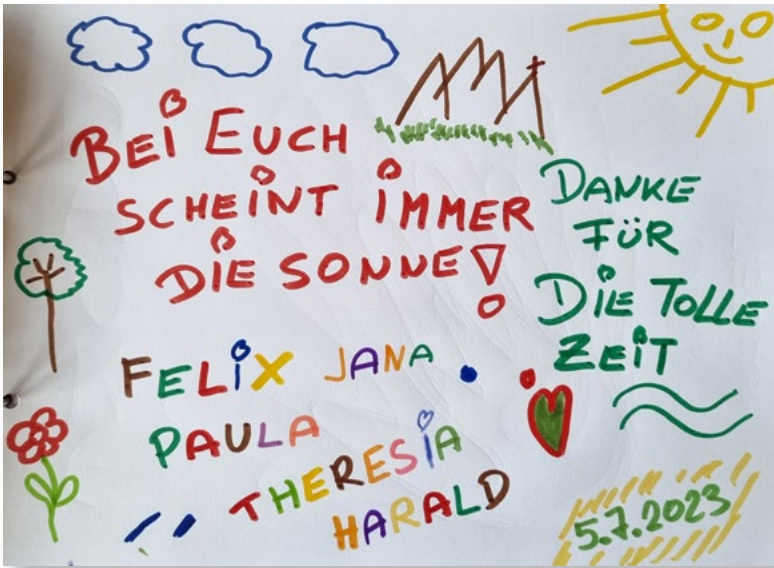 BEI EUCH
SCHEINT IMMER
DIE SONNE!
DANKE
FÜR
DIE TOLLE
ZEIT
FELIX JANA
PAULA
THERESIA
HARALD
5.7.2023